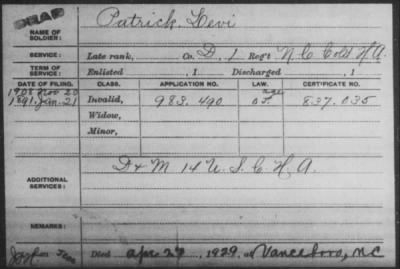 DEAD
Patrick Levi
NAME OF SOLDIER:
SERVICE: Late rank, Co. D, 1 Reg't N C Cold H.A.
TERM OF SERVICE: Enlisted , 1 Discharged , 1
DATE OF FILING. CLASS. APPLICATION NO. LAW. CERTIFICATE NO.
1908 Nov 20 age
1891 Jan. 21 Invalid, 983.490 837.035
Widow,
Minor,
D & M 14 U. S. C. H. A.
ADDITIONAL SERVICES:
REMARKS:
Died Apr 27, 1929, at Vanceboro, N C